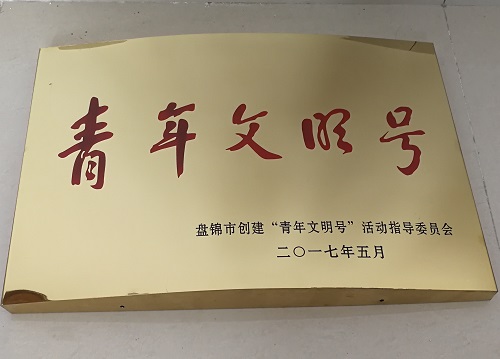 青年文明号
盘锦市创建“青年文明号”活动指导委员会
二〇一七年五月